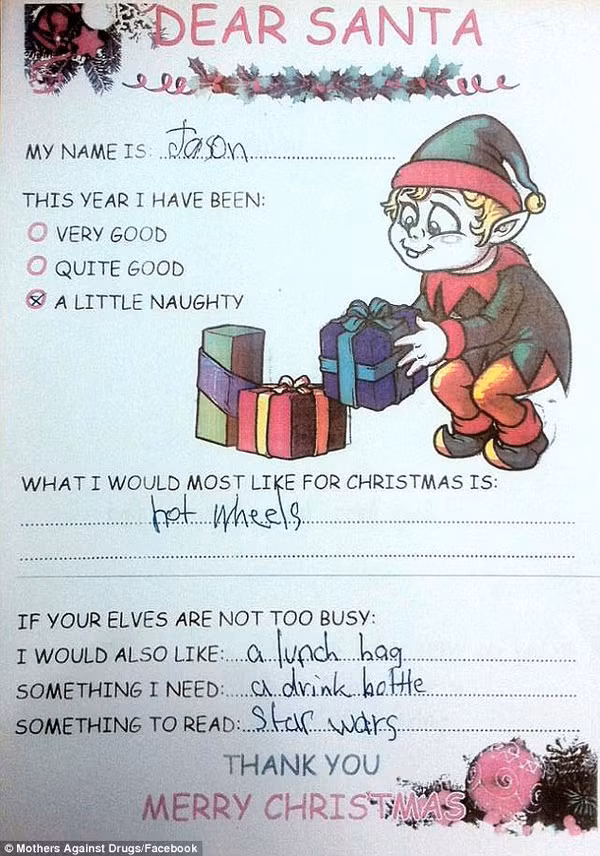 DEAR SANTA
MY NAME IS: Jason
THIS YEAR I HAVE BEEN:
VERY GOOD
QUITE GOOD
A LITTLE NAUGHTY
WHAT I WOULD MOST LIKE FOR CHRISTMAS IS:
hot wheels
IF YOUR ELVES ARE NOT TOO BUSY:
I WOULD ALSO LIKE: a lunch bag
SOMETHING I NEED: a drink bottle
SOMETHING TO READ: Star wars
THANK YOU
MERRY CHRISTMAS
© Mothers Against Drugs/Facebook